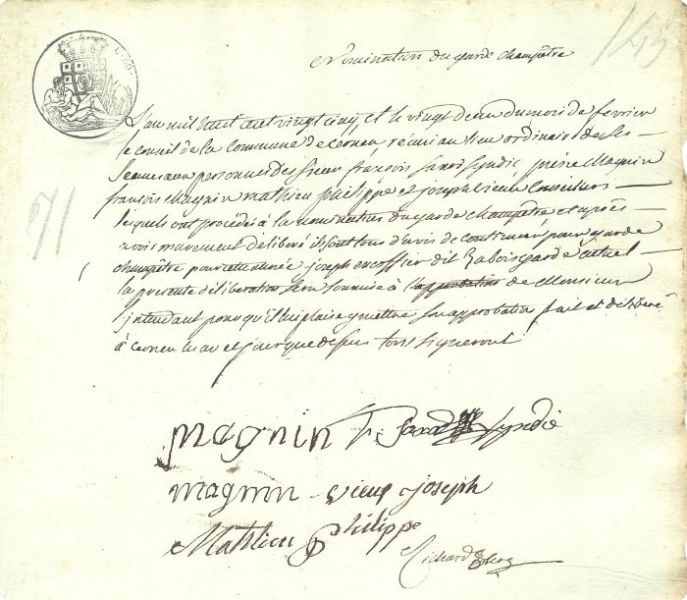 145
Nomination du garde champêtre
71
L'an mil huit cent vingt cinq et le vingt deux du mois de fevrier
le conseil de la commune de cornen, réuni au lieu ordinaire de ses
seances aux personnes des sieur françois sarod syndic, pierre Magnin
françois Magnin mathieu philippe et joseph vieux Conseillers
lesquels ont procédés à la nomination du garde champêtre et après
avoir murement déliberé ils sont tous d'avis de continuer pour garde
champêtre pour cette année joseph excoffier dit Rabois garde actuel
la presente déliberation sera soumise à l'approbation de Monsieur
l'intendant pour qu'il lui plaise y mettre son approbation fait et déliberé
à cornen les an et jour que dessus tous signeront
magnin f. Sarod Syndic
magnin vieux joseph
Mathieu philippe
Richard